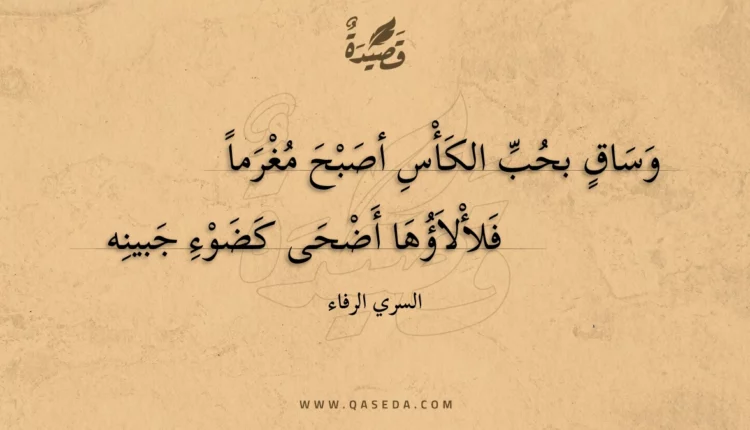 قَصِيدَةٌ
وَسَاقٍ بحُبِّ الكَأْسِ أصَبْحَ مُغْرَماً
فَلألْاَؤُهَا أَضْحَى كَضَوْءِ جَبينِه
السري الرفاء
WWW.QASEDA.COM